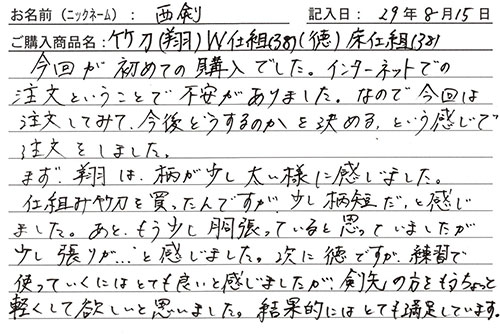 お名前(ニックネーム): 西剣 記入日: 29年8月15日
ご購入商品名:竹刀(翔)W仕組(38)(徳)床仕組(38)
今回が初めての購入でした。インターネットでの
注文ということで不安がありました。なので今回は
注文してみて、今後どうするのかを決める、という感じで
注文をしました。
まず、翔は、柄が少し太い様に感じました。
仕組み竹刀を買ったんですが、少し柄短だ、と感じ
ました。あと、もう少し胴張っていると思っていましたが
少し張りが…と感じました。次に徳ですが、練習で
使っていくにはとても良いと感じましたが、剣先の方をもうちょっと
軽くして欲しいと思いました。結果的にはとても満足しています。